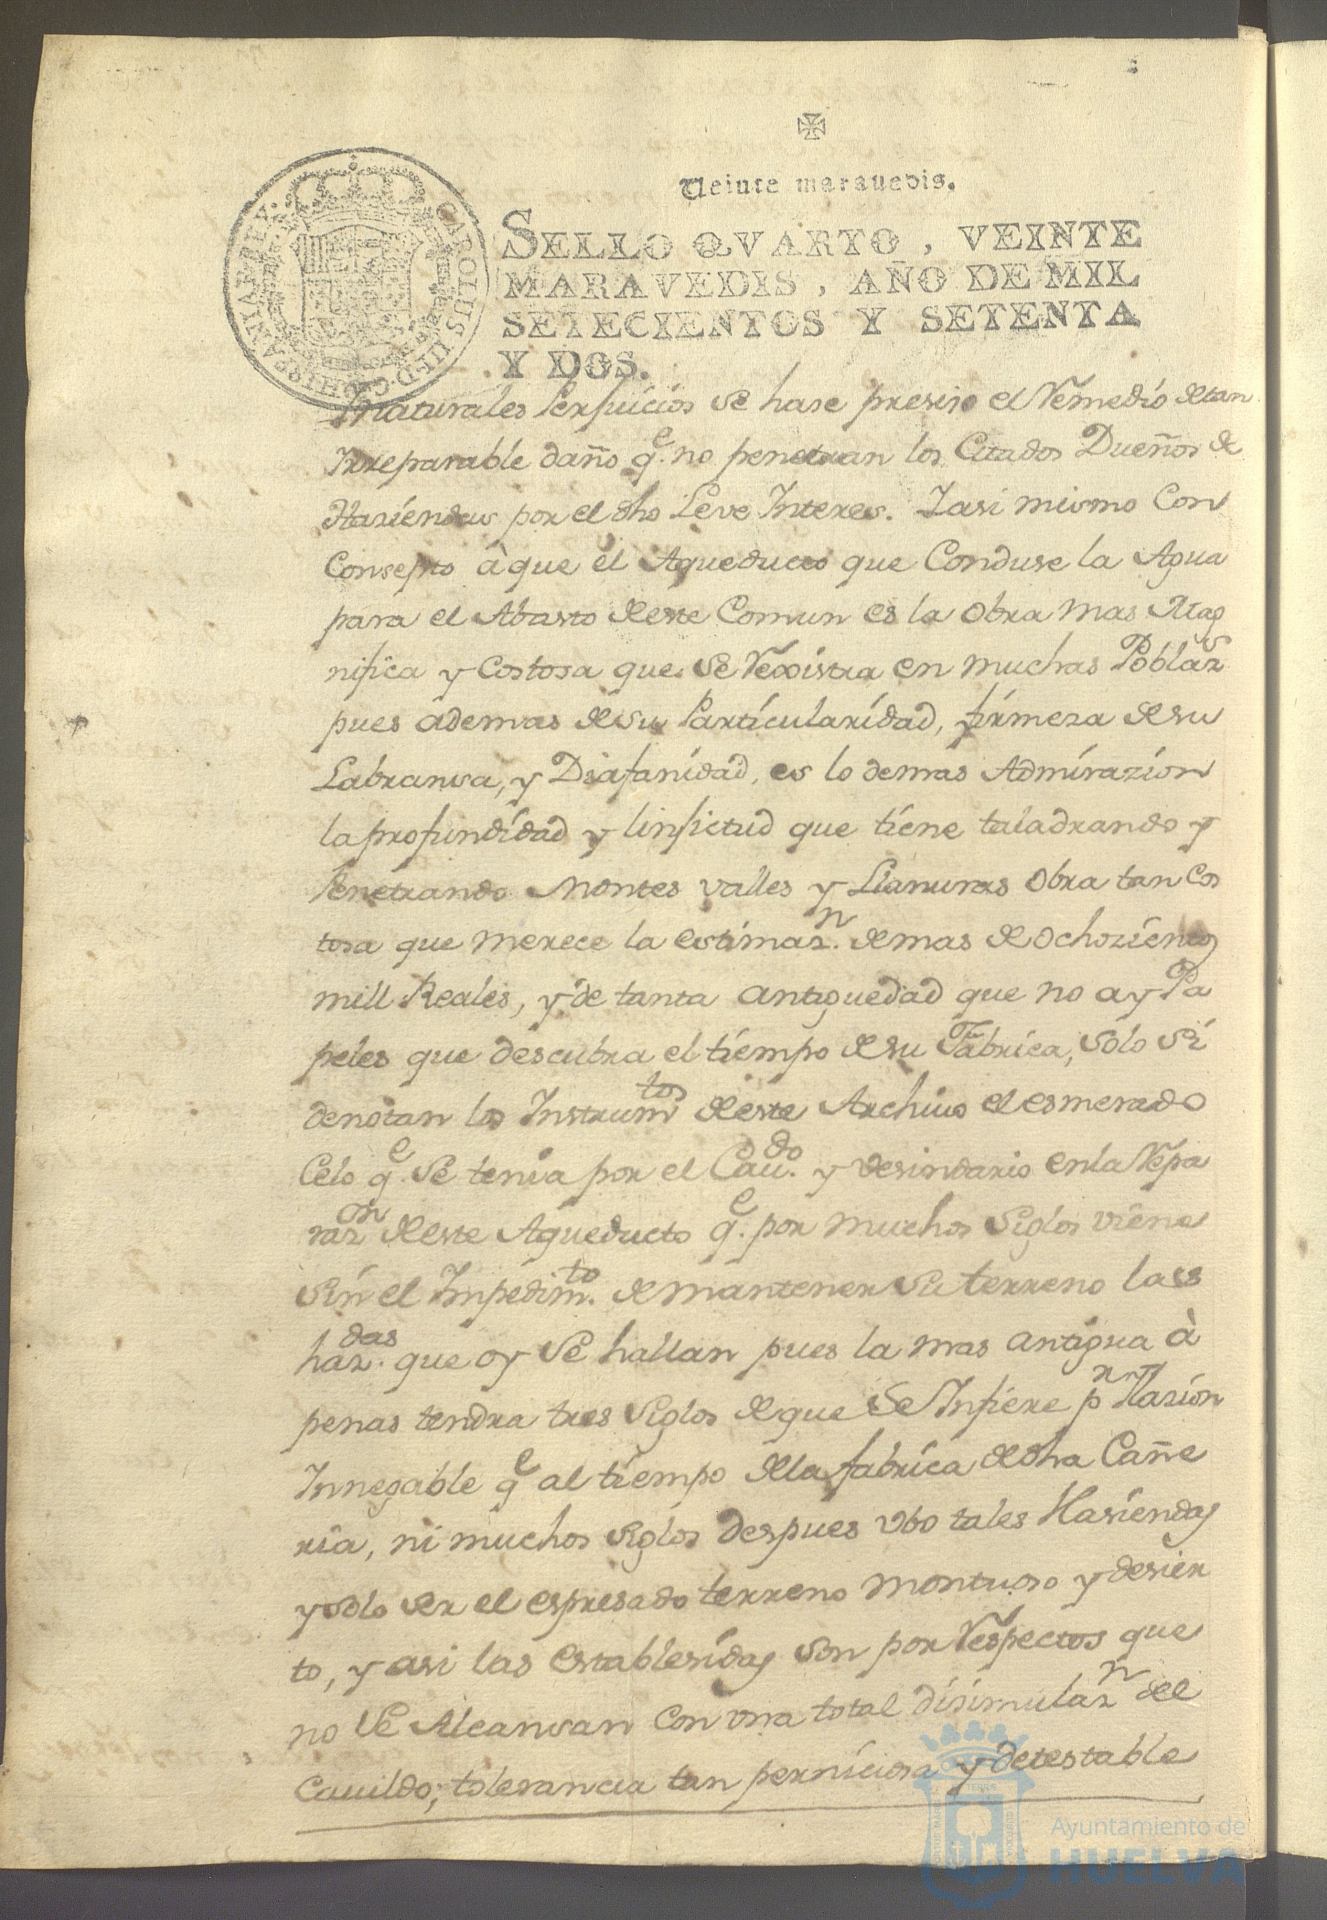 Veinte maravedis.
SELLO QVARTO, VEINTE
MARAVEDIS, AÑO DE MIL
SETECIENTOS Y SETENTA
Y DOS.
CAROLUS III D G HISPANIAR REX
naturales Perjuicios se hase presiso el Remedio de tan
Irreparable daño q.e no penetran los Citados Dueños de
Haziendas por el dho Leve Interes. Iasi mismo Con
Consepto à que el Aqueducto que Conduse la Agua
para el Abasto de este Comun es la Obra mas Mag
nifica y Costosa que se Rexistra en muchas Poblaz.s
pues ademas de su Particularidad, firmeza de su
Labransa, y Diafanidad, es lo demas Admirazion
la profundidad y que tiene taladrando y
Penetrando Montes valles y Llanuras Obra tan Cos
tosa que merece la estimaz.n de mas de ochozientos
mill Reales, y de tanta antiguedad que no ay Pa
peles que descubra el tiempo de su Fabrica, solo si
denotan los Instrum.tos de este Archivo el esmerado
Celo q.e se tenia por el Cau.do y vesindario en la Repa
raz.on de este Aqueducto q.e por muchos siglos viene
sin el Impedim.to de mantener su terreno las
haz.das que oy se hallan pues la mas antigua à
penas tendra tres siglos de que se Infiere p.r Razion
Innegable q.e al tiempo de la fabrica de dha Cañe
ria, ni muchos siglos despues ubo tales Hasiendas
y solo ser el espresado terreno montuoso y desier
to, y asi las establesidas son por Respectos que
no se Alcansan con una total disimulaz.n del
Cauildo; tolerancia tan perniciosa y detestable
Ayuntamiento de
HUELVA